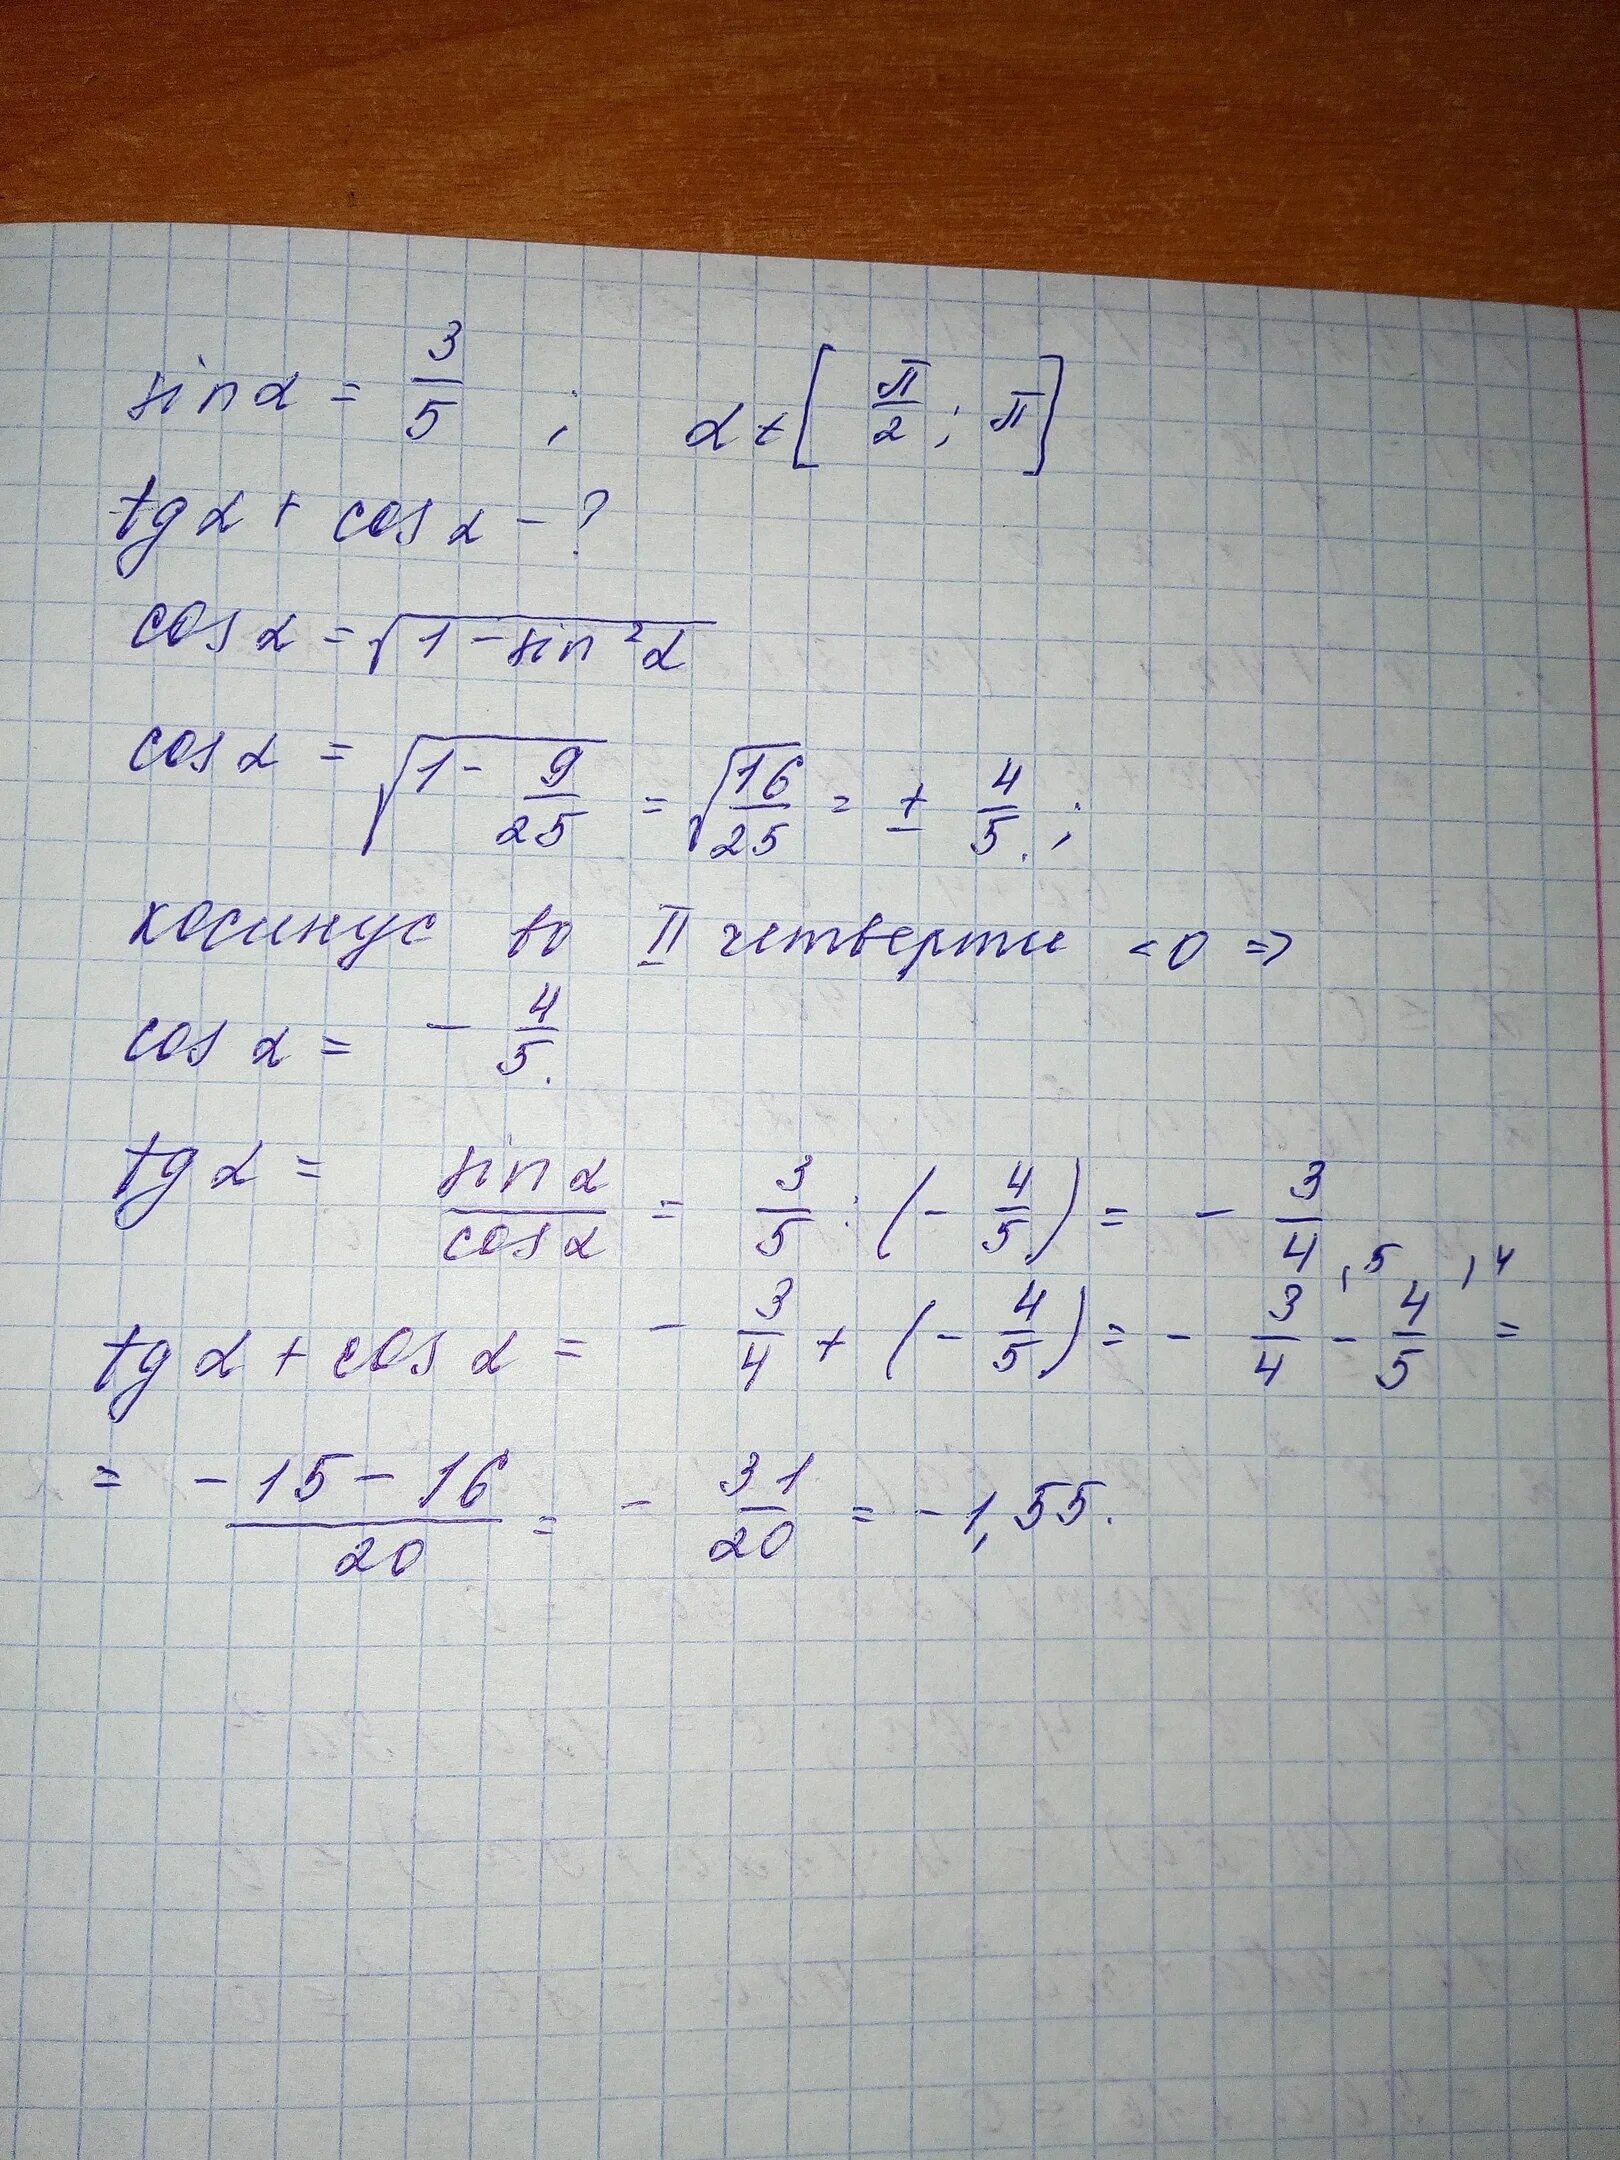 sin α = 3/5 ; α ∈ [π/2; π]
tg α + cos α - ?
cos α = √(1 - sin²α)
cos α = √(1 - 9/25) = √(16/25) = ± 4/5.;
косинус во II четверти < 0 =>
cos α = - 4/5.
tg α = sin α/cos α = 3/5 : (- 4/5) = - 3/4
tg α + cos α = - 3/4 + (- 4/5) = - 3/4 ⁽⁵ - 4/5 ⁽⁴ =
= (-15 - 16)/20 = - 31/20 = -1,55.